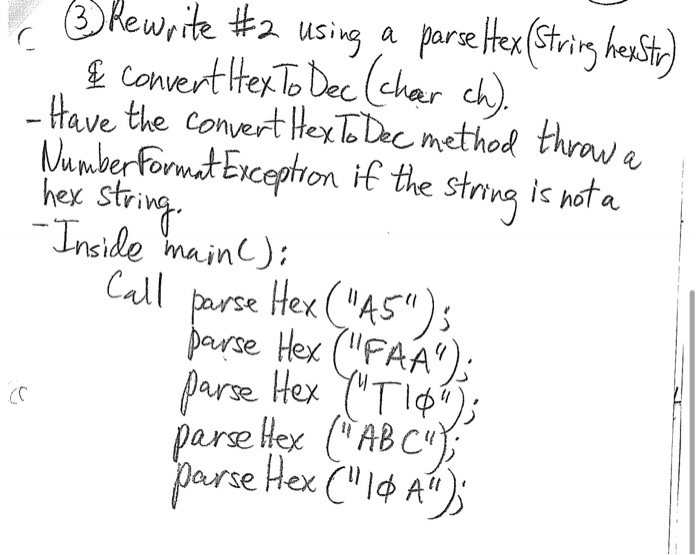 ③ Rewrite #2 using a parseHex(String hexStr)
& convertHexToDec(char ch).
- Have the convertHexToDec method throw a
NumberFormatException if the string is not a
hex string.
- Inside main():
Call parse Hex ("A5");
parse Hex ("FAA");
parse Hex ("T1φ");
parseHex ("ABC");
parseHex ("1φA");